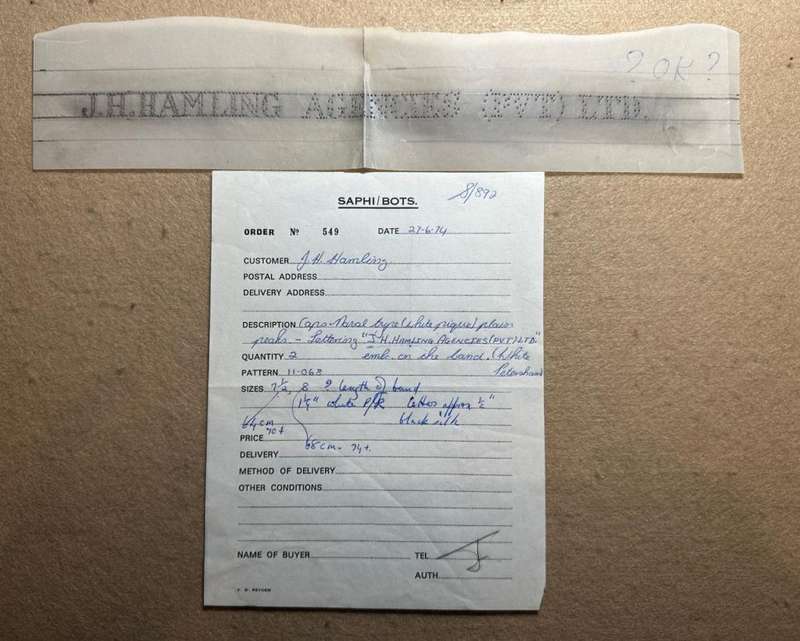 ? OK ?
J.H. HAMLING AGENCIES (PVT) LTD.
SAPHI/BOTS.
8/892
ORDER Nº 549 DATE 27-6-74
CUSTOMER J.H. Hamling
POSTAL ADDRESS
DELIVERY ADDRESS
DESCRIPTION Caps - Naval type (white pique) plain
peaks. - Lettering "J.H. HAMLING AGENCIES (PVT) LTD."
QUANTITY 2 emb. on the band. (White
PATTERN 11-068 Petersham
SIZES 7½, 8 ? length of band
1¼" white P/R letters approx ½"
64cm black silk
70+
PRICE
68cm - 74+.
DELIVERY
METHOD OF DELIVERY
OTHER CONDITIONS
NAME OF BUYER TEL
AUTH